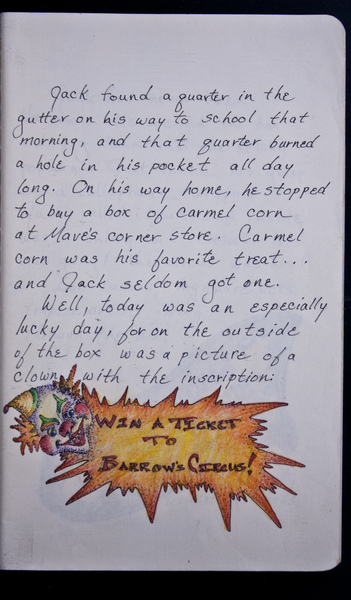 Jack found a quarter in the
gutter on his way to school that
morning, and that quarter burned
a hole in his pocket all day
long. On his way home, he stopped
to buy a box of carmel corn
at Mave's corner store. Carmel
corn was his favorite treat...
and Jack seldom got one.
Well, today was an especially
lucky day, for on the outside
of the box was a picture of a
clown with the inscription:
WIN A TICKET
TO
BARROW'S CIRCUS!